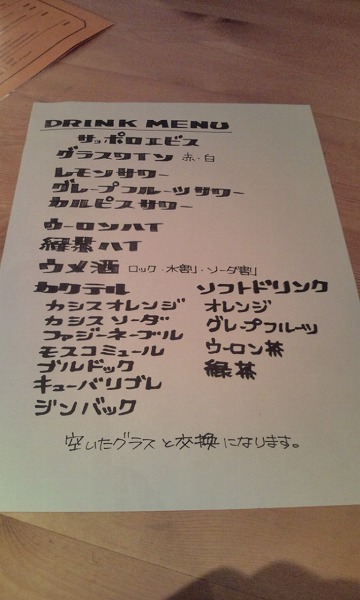 DRINK MENU
サッポロエビス
グラスワイン 赤・白
レモンサワー
グレープフルーツサワー
カルピスサワー
ウーロンハイ
緑茶ハイ
ウメ酒 ロック・水割り・ソーダ割り
カクテル
カシスオレンジ
カシスソーダ
ファジーネーブル
モスコミュール
ブルドック
キューバリブレ
ジンバック
ソフトドリンク
オレンジ
グレープフルーツ
ウーロン茶
緑茶
空いたグラスと交換になります。